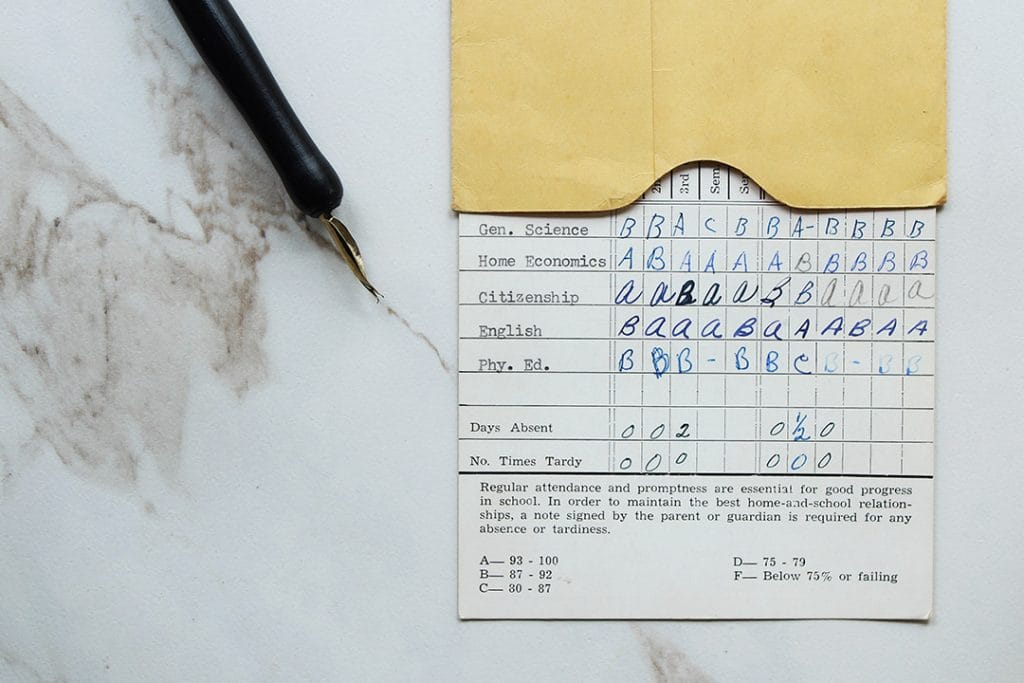 3rd Sem
Gen. Science B B A C B B A- B B B B
Home Economics A B A A A A B B B B B
Citizenship a a B a a B B a a a a
English B a a a B a A A B A A
Phy. Ed. B B B - B B C B - B B
Days Absent 0 0 2 0 ½ 0
No. Times Tardy 0 0 0 0 0 0
Regular attendance and promptness are essential for good progress
in school. In order to maintain the best home-and-school relation-
ships, a note signed by the parent or guardian is required for any
absence or tardiness.
A— 93 - 100
B— 87 - 92
C— 80 - 87
D— 75 - 79
F— Below 75% or failing